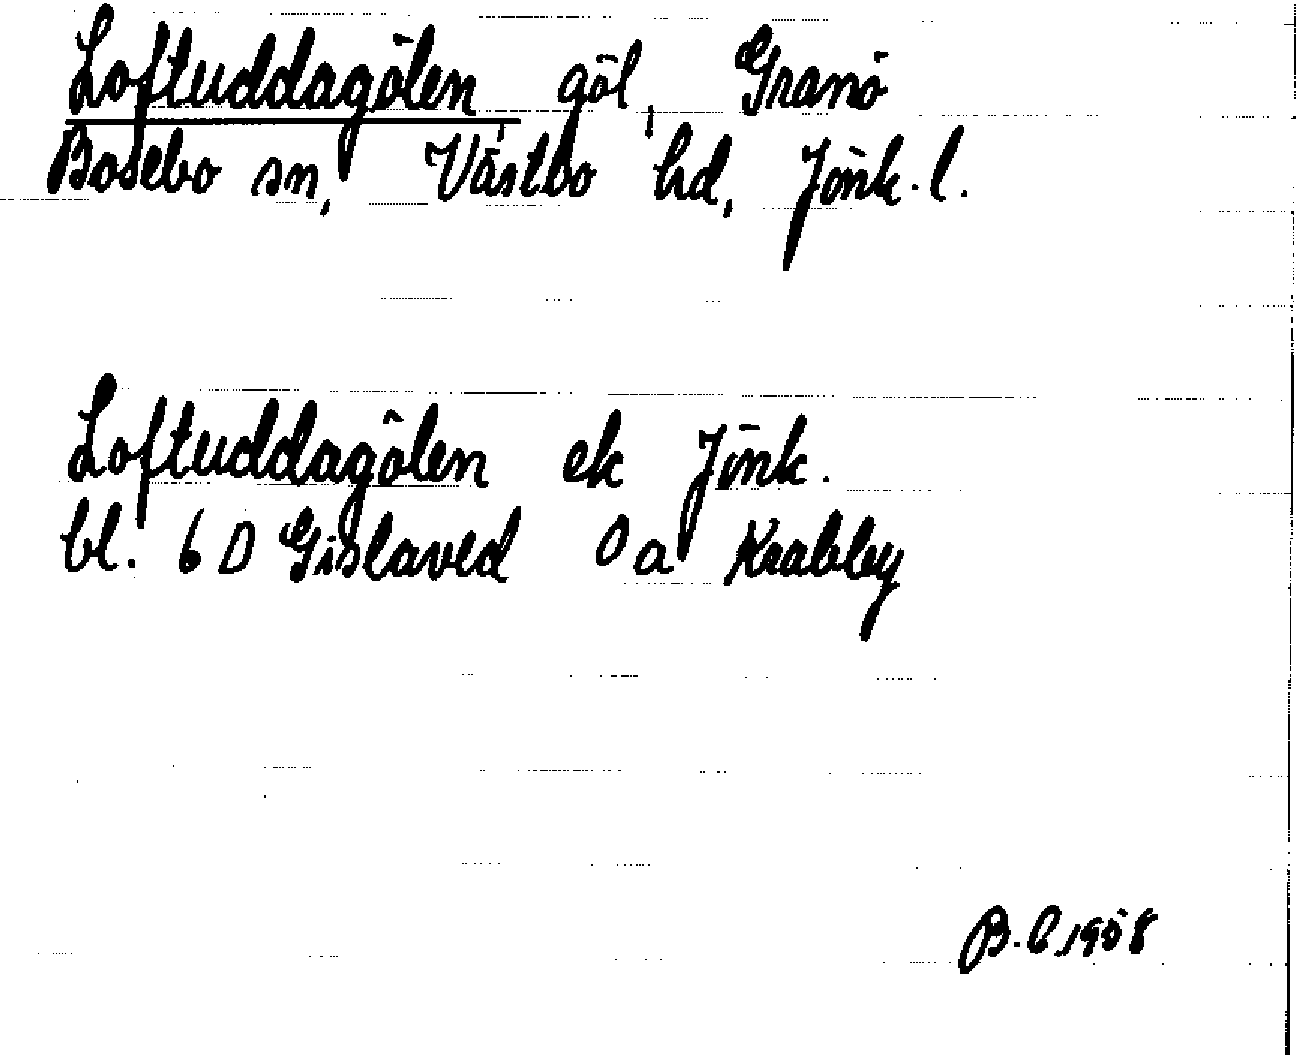 Loftuddagölen, göl, Granö
Bosebo sn, Västbo hd, Jönk. l.
Loftuddagölen ek Jönk.
bl. 6 D Gislaved 0 a Krabbey
B. C. 1958